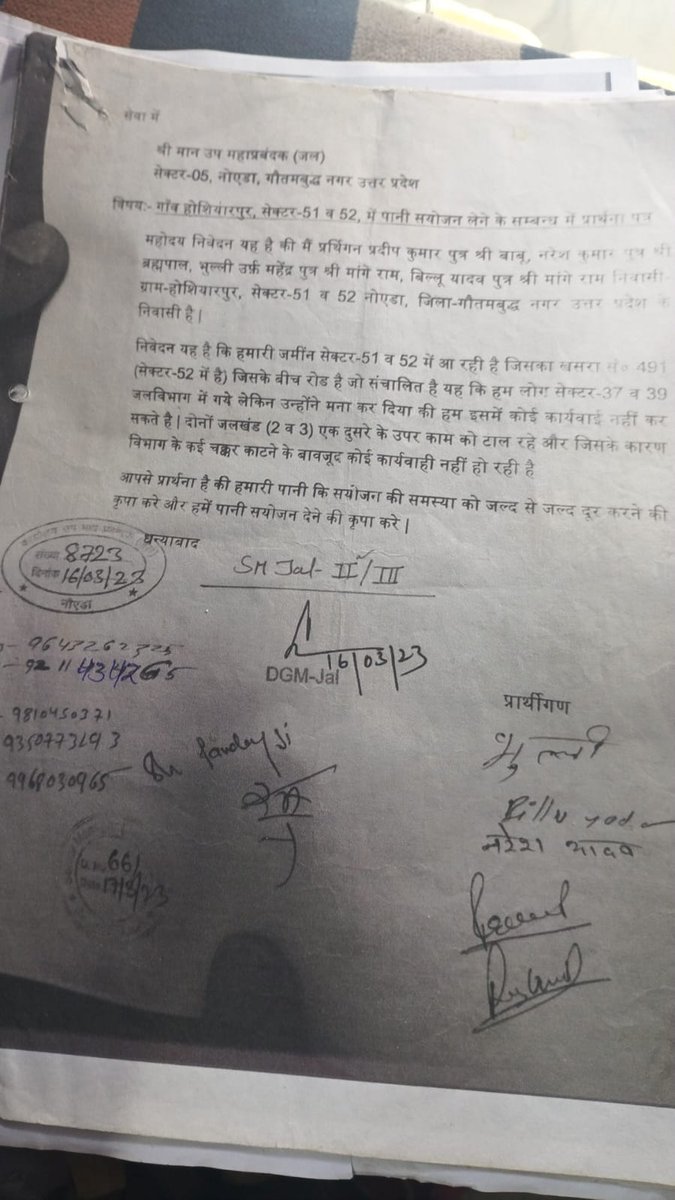 सेवा में
श्री मान उप महाप्रबंदक (जल)
सेक्टर-05, नोएडा, गौतमबुद्ध नगर उत्तर प्रदेश
विषयः- गाँव होशियारपुर, सेक्टर-51 व 52, में पानी सयोजन लेने के सम्बन्ध में प्रार्थना पत्र
महोदय निवेदन यह है की मैं प्रर्थिगन प्रदीप कुमार पुत्र श्री बाबू, नरेश कुमार पुत्र श्री
ब्रह्मपाल, भुल्ली उर्फ़ महेंद्र पुत्र श्री मांगे राम, बिल्लू यादव पुत्र श्री मांगे राम निवासी-
ग्राम-होशियारपुर, सेक्टर-51 व 52 नोएडा, जिला-गौतमबुद्ध नगर उत्तर प्रदेश के
निवासी है |
निवेदन यह है कि हमारी जमींन सेक्टर-51 व 52 में आ रही है जिसका खसरा सं० 491
(सेक्टर-52 में है) जिसके बीच रोड है जो संचालित है यह कि हम लोग सेक्टर-37 व 39
जलविभाग में गये लेकिन उन्होंने मना कर दिया की हम इसमें कोई कार्यवाई नहीं कर
सकते है | दोनों जलखंड (2 व 3) एक दुसरे के उपर काम को टाल रहे और जिसके कारण
विभाग के कई चक्कर काटने के बावजूद कोई कार्यवाही नहीं हो रही है
आपसे प्रार्थना है की हमारी पानी कि सयोजन की समस्या को जल्द से जल्द दूर करने की
कृपा करे और हमें पानी सयोजन देने की कृपा करे |
धन्यावाद
संख्या 8723
दिनांक 16/03/23
नोएडा
SM Jal- II / III
16/03/23
DGM-Jal
9810450371
9968030965
Pandey Ji
661
17/3/23
प्रार्थीगण
भुल्ली
Billu yadav
नरेश यादव